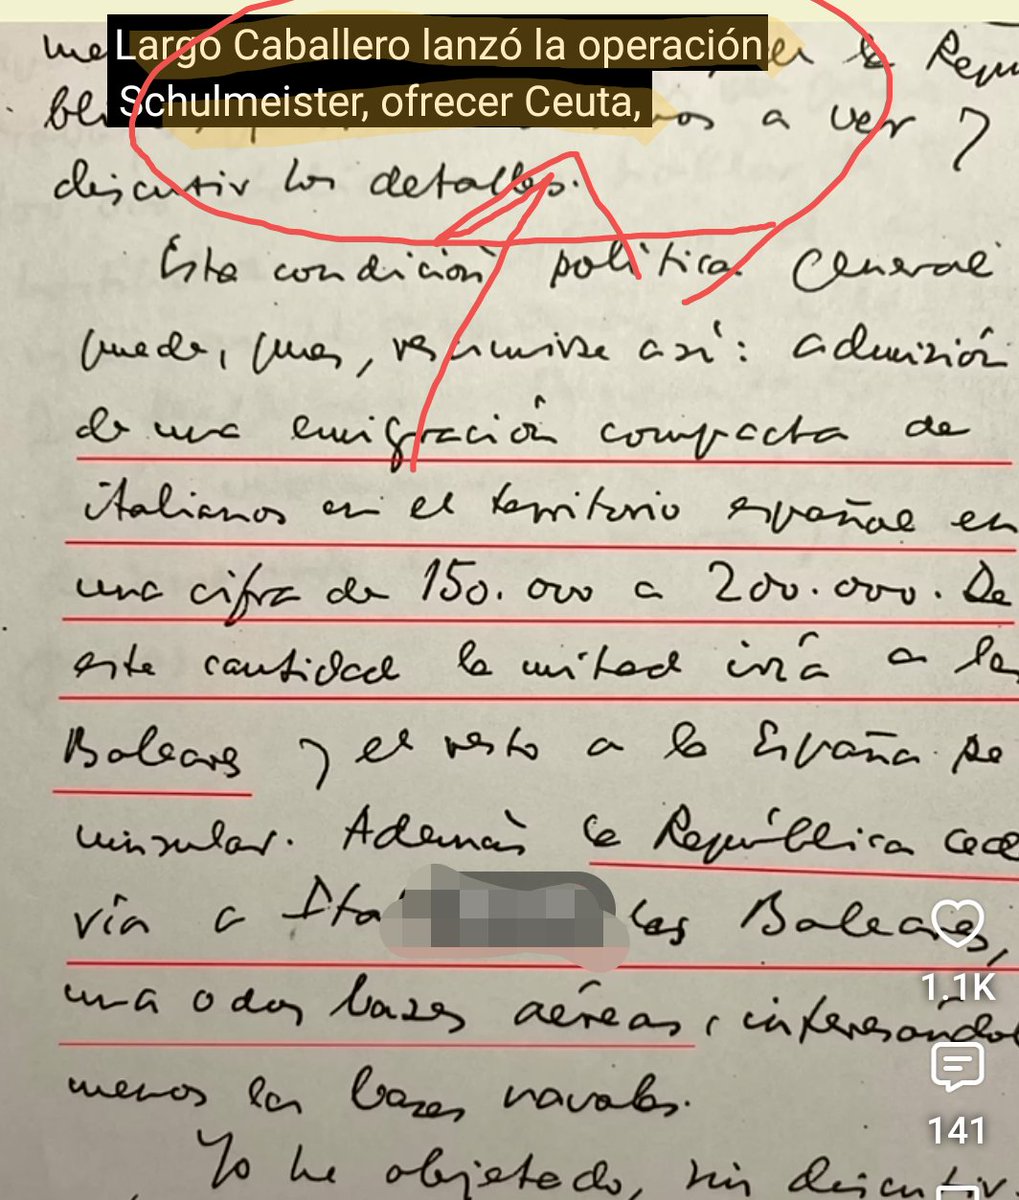 Largo Caballero lanzó la operación
Schulmeister, ofrecer Ceuta,
la Repu
a ver y
discutir los detalles.
Esta condición política General
puede, pues, resumirse así: admisión
de una emigración compacta de
italianos en el territorio español en
una cifra de 150.000 a 200.000. De
esta cantidad la mitad irá a las
Baleares y el resto a la España pe
ninsular. Además la República cede
ría a Ita las Baleares,
una o dos bases aéreas, interesándol
menos las bases navales.
Yo he objetado, sin discutir
1.1K
141